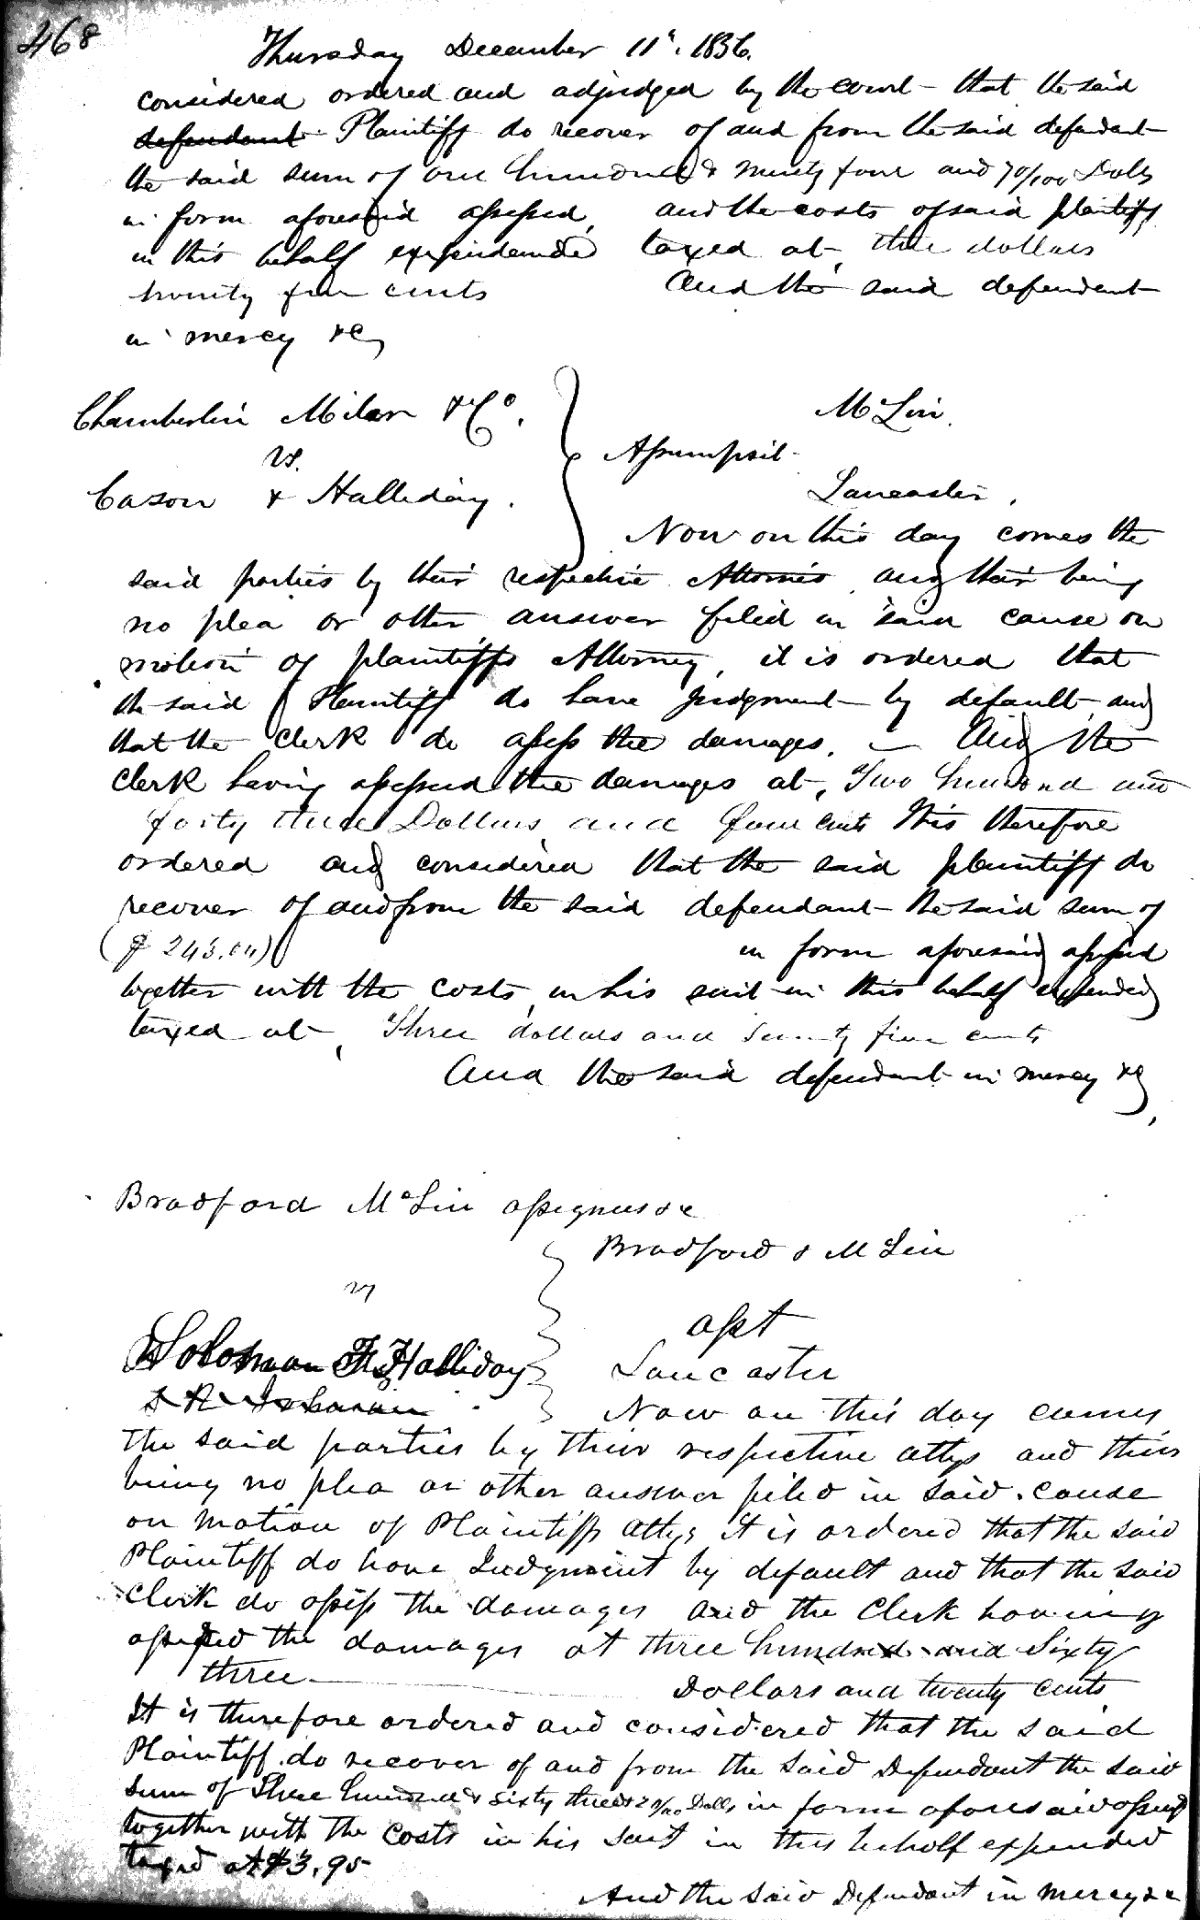 468
Thursday December 11th. 1836.
considered ordered and adjudged by the court - that the said
defendant Plaintiff do recover of and from the said defendant
the said sum of one hundred & ninety four and 70/100 Dolls
in form aforesaid assessed, and the costs of said plaintiff
in this behalf expended taxed at, three dollars
twenty five cents And the said defendant
in mercy &c
Chamberlin Milan & Co. McLin.
vs. Assumpsit
Cason & Halliday. Lancaster.
Now on this day comes the
said parties by their respective Attornies and their being
no plea or other answer filed in said cause on
motion of plaintiffs Attorney, it is ordered that
the said Plaintiff do have judgment by default and
that the Clerk do assess the damages. And the
Clerk having assessed the damages at, Two hundred and
forty three Dollars and four cents This therefore
ordered and considered that the said plaintiff do
recover of and from the said defendant the said sum of
($ 243.04) in form aforesaid assessed
together with the costs in his suit in this behalf expended
taxed at, Three dollars and seventy five cents
And the said defendant in mercy &c,
Bradford McLin assignees &c
Bradford & McLin
vs
asst
Solomon F Halliday
Lancaster
Now on this day comes
the said parties by their respective attys and their
being no plea or other answer filed in said cause
on motion of Plaintiffs Attys it is ordered that the said
Plaintiff do have Judgment by default and that the said
Clerk do assess the damages and the Clerk having
assessed the damages at three hundred and Sixty
three Dollars and twenty cents
It is therefore ordered and considered that the said
Plaintiff do recover of and from the said Defendant the said
sum of Three hundred & sixty three & 20/100 Dolls in form aforesaid assessed
together with the costs in his suit in this behalf expended
taxed at $3.95
And the said Defendant in mercy &c